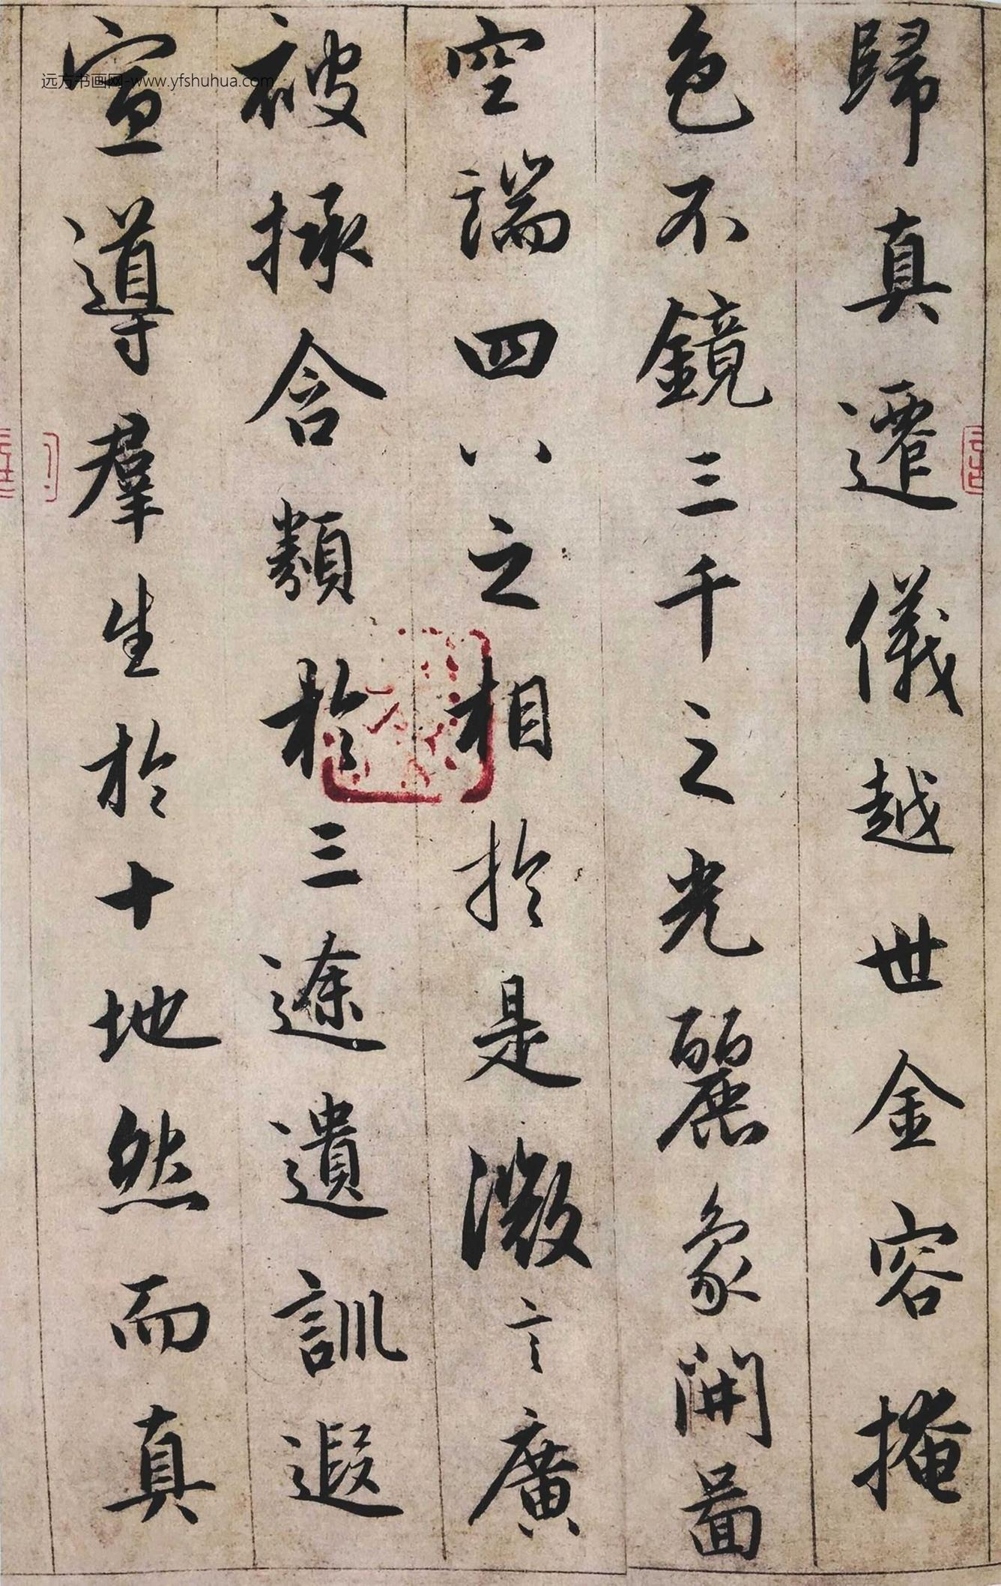 歸真遷儀越世金容掩
色不鏡三千之光麗象開啚
空端四八之相於是微言廣
被拯含類於三途遺訓遐
宣導羣生於十地然而真
远方书画网-www.yfshuhua.com